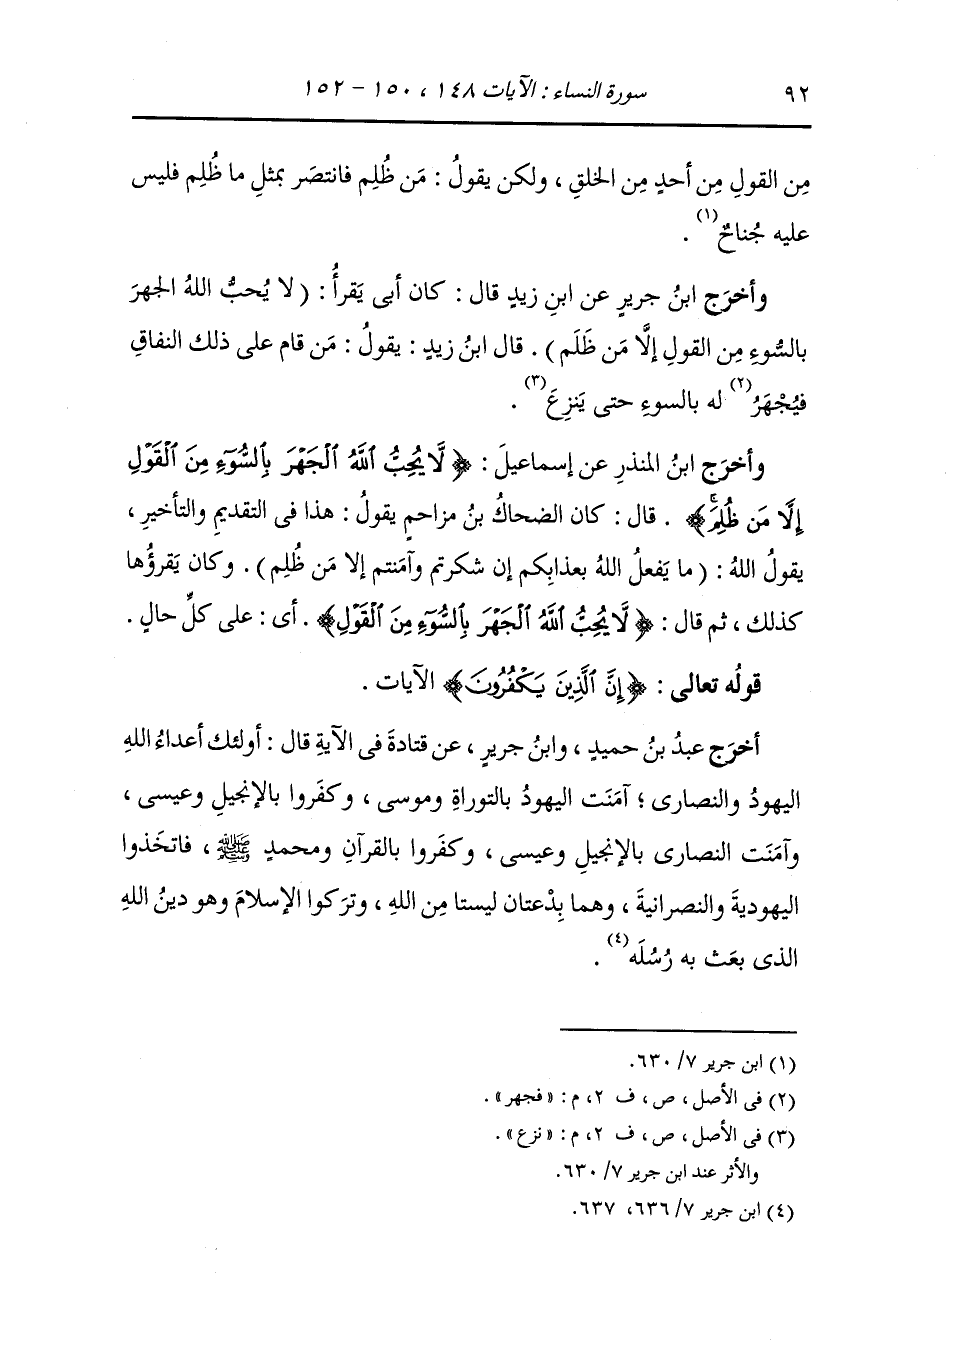 ٩٢ سورة النساء : الآيات ١٤٨ ، ١٥٠ - ١٥٢
مِن القولِ مِن أحدٍ مِن الخلقِ ، ولكن يقولُ : مَن ظُلِم فانتصَر بمثلِ ما ظُلِم فليس
عليه جُناحٌ(١) .
وأخرَج ابنُ جريرٍ عن ابنِ زيدٍ قال : كان أبى يَقرأُ : ( لا يُحبُّ اللهُ الجهرَ
بالسُّوءِ مِن القولِ إلَّا مَن ظَلَم ) . قال ابنُ زيدٍ : يقولُ : مَن قام على ذلك النفاقِ
فيُجْهَرُ(٢) له بالسوءِ حتى يَنزِعَ(٣) .
وأخرَج ابنُ المنذرِ عن إسماعيلَ : ﴿ لَّا يُحِبُّ ٱللَّهُ ٱلْجَهْرَ بِٱلسُّوٓءِ مِنَ ٱلْقَوْلِ
إِلَّا مَن ظُلِمَۚ ﴾ . قال : كان الضحاكُ بنُ مزاحمٍ يقولُ : هذا فى التقديمِ والتأخيرِ ،
يقولُ اللهُ : ( ما يَفعلُ اللهُ بعذابِكم إن شكرتم وآمَنتم إلا مَن ظُلِم ) . وكان يَقرؤُها
كذلك ، ثم قال : ﴿ لَّا يُحِبُّ ٱللَّهُ ٱلْجَهْرَ بِٱلسُّوٓءِ مِنَ ٱلْقَوْلِ ﴾ . أى : على كلِّ حالٍ .
قولُه تعالى : ﴿ إِنَّ ٱلَّذِينَ يَكْفُرُونَ ﴾ الآيات .
أخرَج عبدُ بنُ حميدٍ ، وابنُ جريرٍ ، عن قتادةَ فى الآيةِ قال : أولئك أعداءُ اللهِ
اليهودُ والنصارى ؛ آمَنَت اليهودُ بالتوراةِ وموسى ، وكفَروا بالإنجيلِ وعيسى ،
وآمَنَت النصارى بالإنجيلِ وعيسى ، وكفَروا بالقرآنِ ومحمدٍ ﷺ ، فاتخَذوا
اليهوديةَ والنصرانيةَ ، وهما بِدْعتان ليستا مِن اللهِ ، وترَكوا الإسلامَ وهو دينُ اللهِ
الذى بعَث به رُسُلَه(٤) .
(١) ابن جرير ٧/ ٦٣٠.
(٢) فى الأصل ، ص ، ف ٢، م : « فجهر » .
(٣) فى الأصل ، ص ، ف ٢، م : « نزع » .
والأثر عند ابن جرير ٧/ ٦٣٠.
(٤) ابن جرير ٧/ ٦٣٦، ٦٣٧.